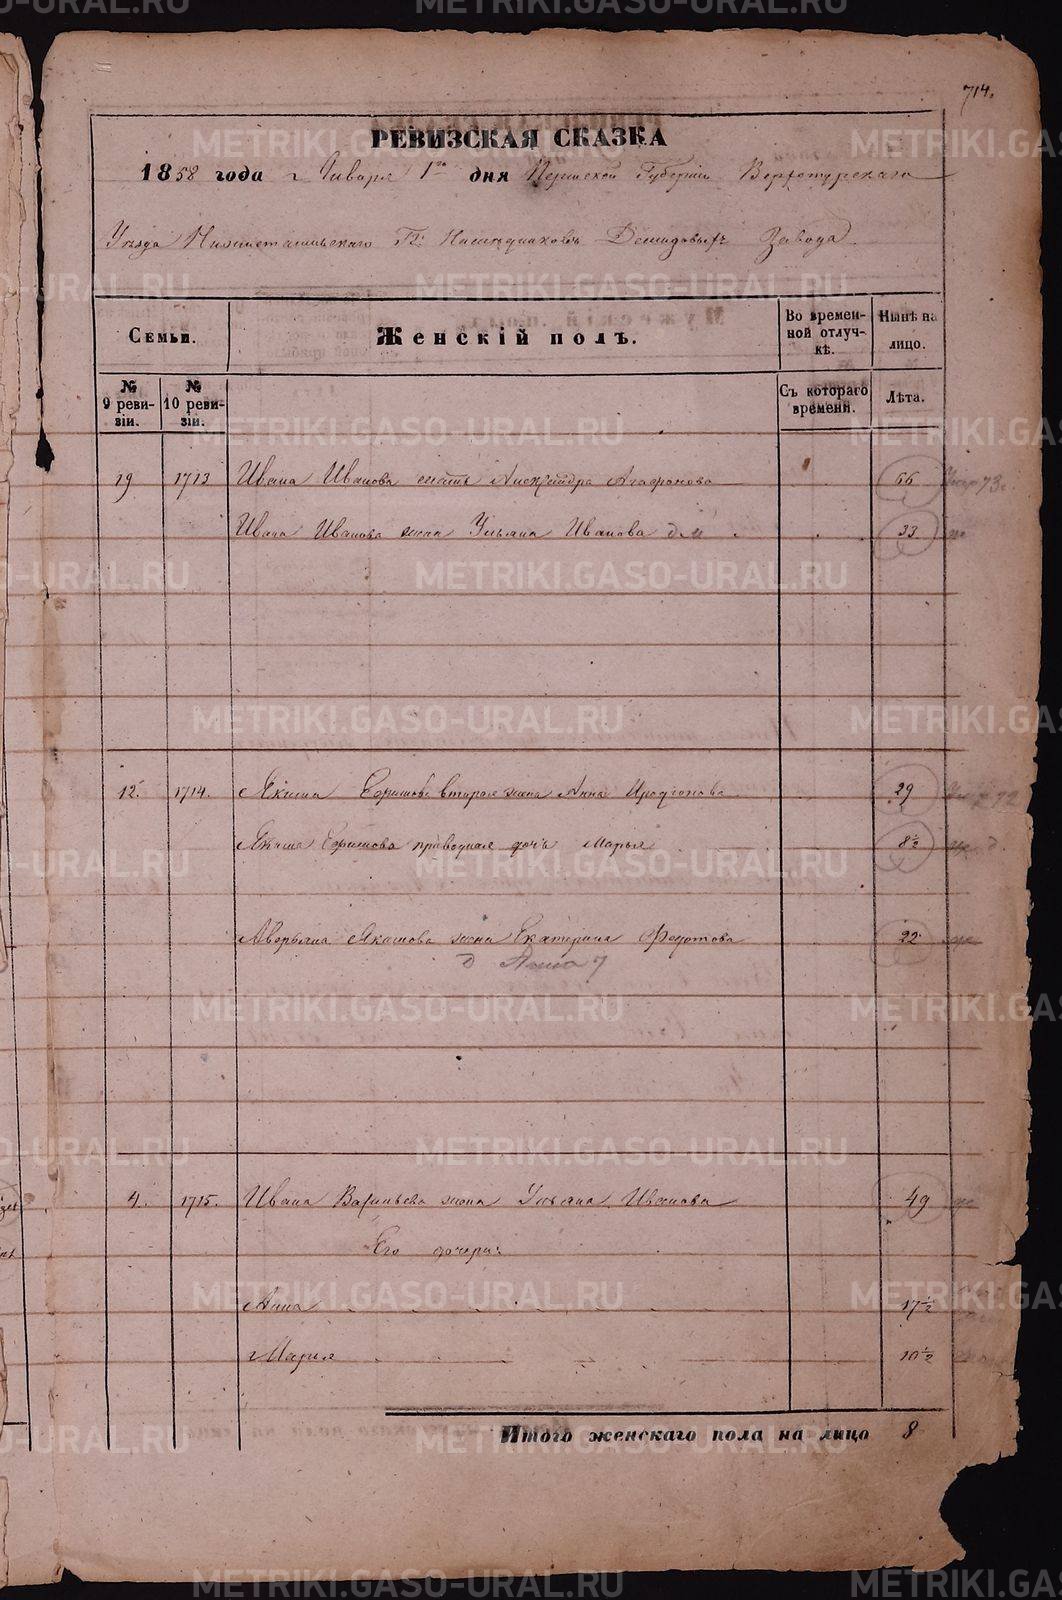 714.
РЕВИЗСКАЯ СКАЗКА
1858 года Января 1го дня Пермской Губернiи Верхотурскаго
Уѣзда Нижнетагильскаго Гг. Наслѣдниковъ Демидовыхъ Завода
Семьи.
Женскiй полъ.
Во времен-
ной отлуч-
кѣ.
Нынѣ на
лицо.
№
9 реви-
зiи.
№
10 реви-
зiи.
Съ котораго
времени.
Лѣта.
19 1713 Ивана Иванова мать Александра Агафонова 66
Ивана Иванова жена Ульяна Иванова 33
12. 1714. Якима Ефимова вторая жена Анна Иродiонова 29
Якима Ефимова приводная дочь Марья 8½
Аверьяна Якимова жена Екатерина Федотова 22
4. 1715. Ивана Васильева жена Ульяна Иванова 49
Его дочери:
Анна 17½
Марья 10½
Итого женскаго пола на лицо 8
METRIKI.GASO-URAL.RU